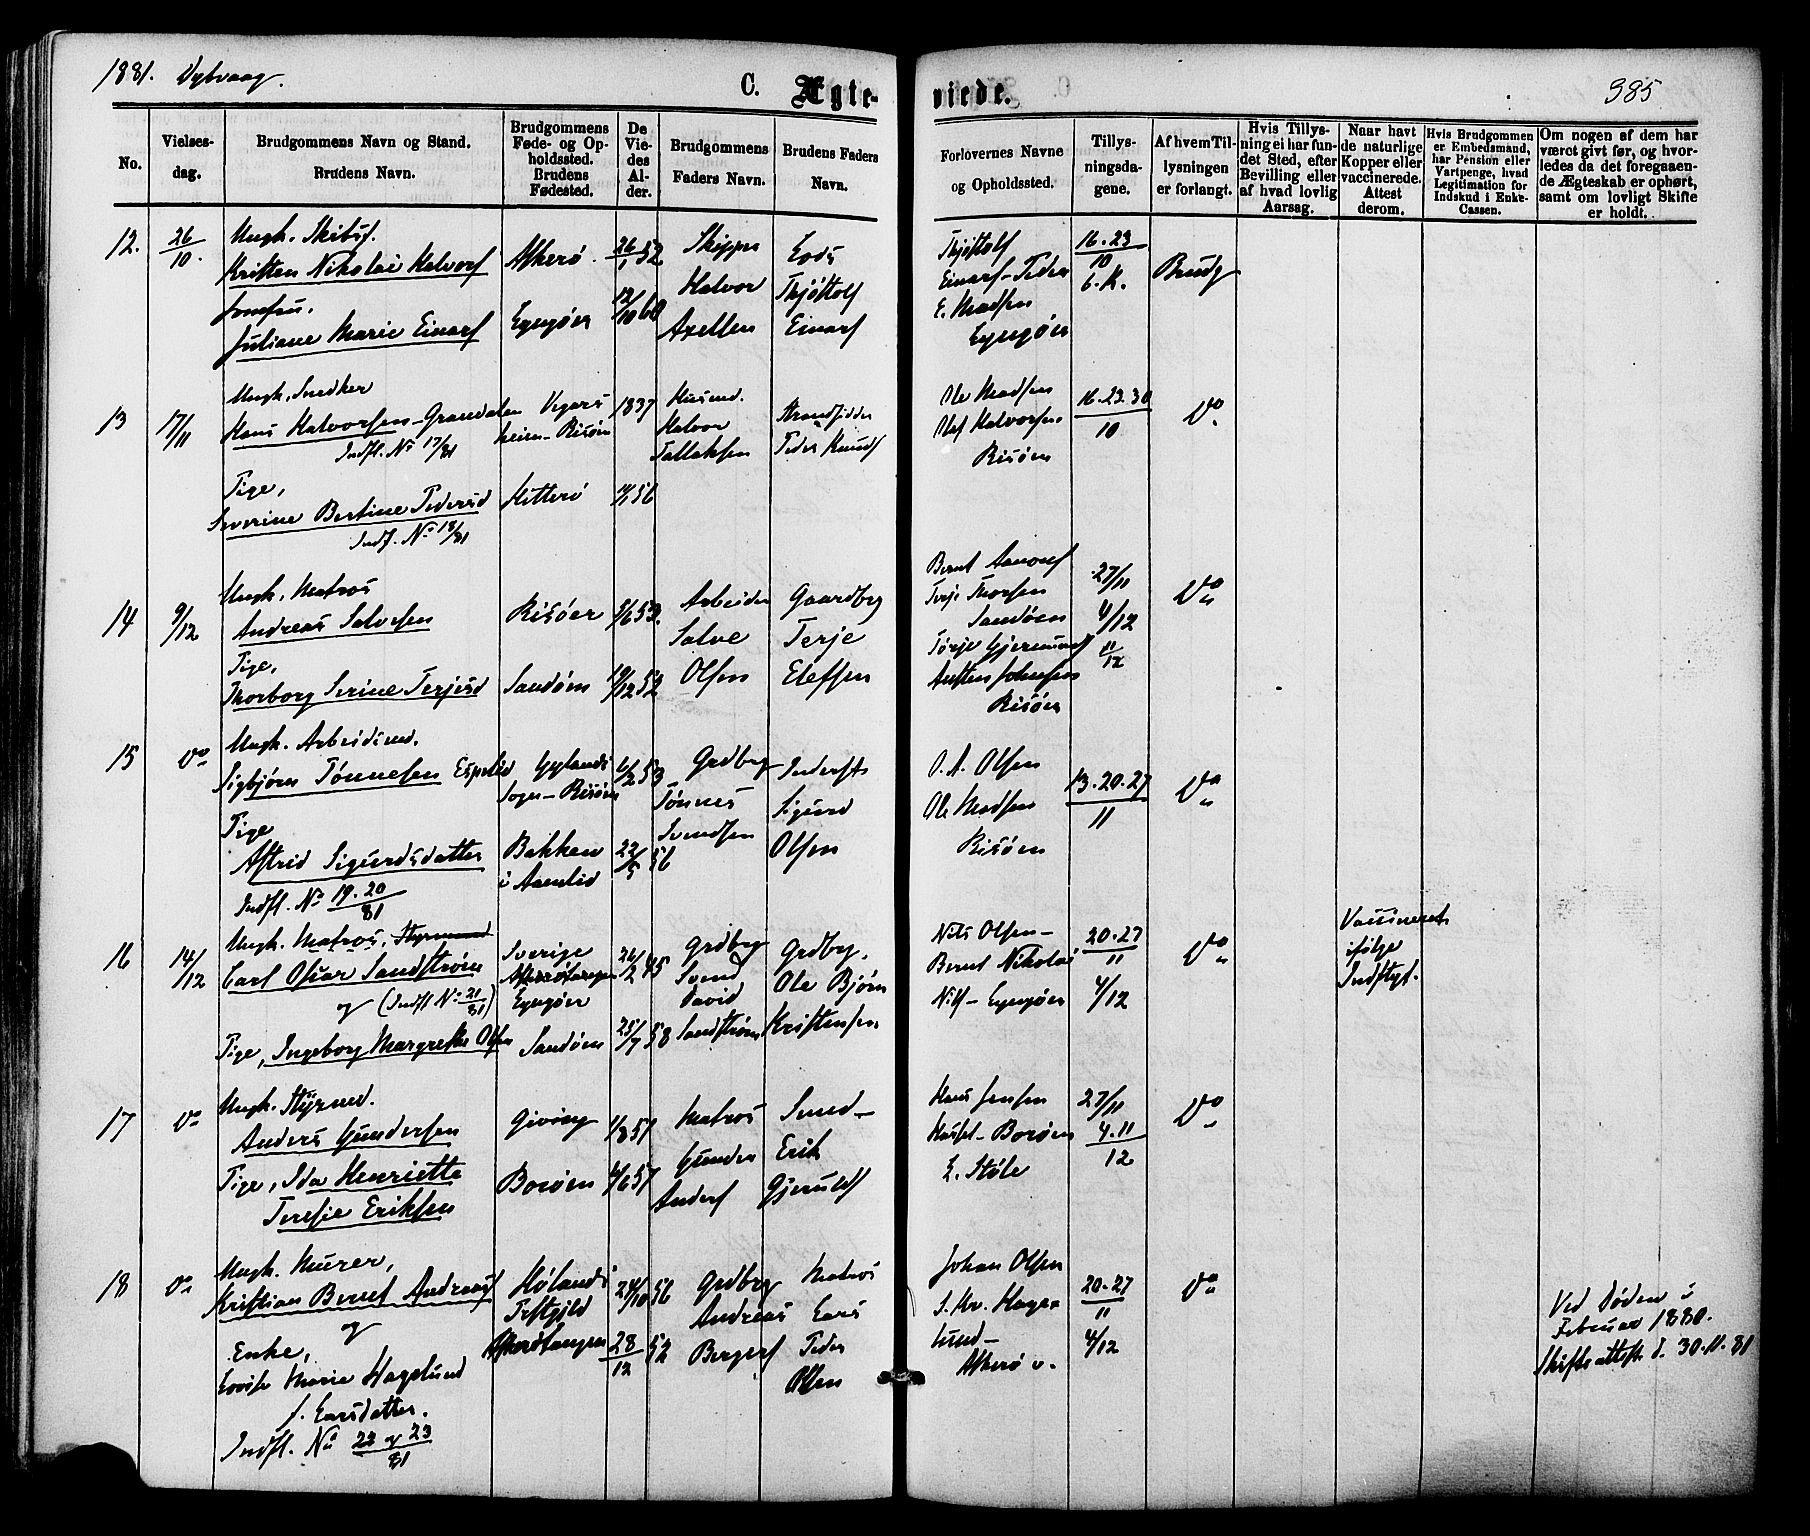 1881. Dybvaag.
C. Ægteviede.
385
No.
Vielsesdag.
Brudgommens Navn og Stand.
Brudens Navn.
Brudgommens Føde- og Opholdssted. Brudens Fødested.
De Viedes Alder.
Brudgommens Faders Navn.
Brudens Faders Navn.
Forlovernes Navne og Opholdssted.
Tillysningsdagene.
Af hvem Tillysningen er forlangt.
Hvis Tillysning ei har fundet Sted, efter Bevilling eller af hvad lovlig Aarsag.
Naar havt de naturlige Kopper eller vaccinerede. Attest derom.
Hvis Brudgommen er Embedsmand, har Pension eller Vartpenge, hvad Legitimation for Indskud i Enke-Cassen.
Om nogen af dem har været givt før, og hvorledes da det foregaaende Ægteskab er ophørt, samt om lovligt Skifte er holdt.
12. 26/10.
Ungk. Skibsf.
Kristen Nikolai Halvors
Juliane Marie Einars
Askerø.
26/1 52
Lyngøer
12/10 60
Skipper
Halvor
Axelsen
Lods
Thjøstolf
Einars
Thjøstolf
Einars- Peder
E. Madsen
Lyngøer
16.23/10
6. K.
Brudg
13 17/11
Ungk. Snedker
Hans Halvorsen-Grandalen
Indfl. No 17/81
Pige,
Severine Bertine Pedersd
Indf. No 18/81
Vegars
heien- Risøer
1837
Hitterø
56
Husmd.
Halvor
Tallaksen
Strandsidder
Peder Knuds
Ole Madsen
Olaf Halvorsen
Risøer
16.23.30/10
Do
14 9/12
Ungk. Matros
Andreas Salvesen
Pige,
Thorborg Serine Terjesd
Risøer
5/6 53.
Sandøen
19/12 52
Arbeider
Salve
Olsen
Gaardbr
Terje
Eleffsen
Bernt Aanons
Terje Thorsen
Sandøen
Terje Gjermunds
Austen Johnsen
Risøer
27/11
4/12
11/12
Do
15 Do
Ungk. Arbeidsmd.
Sigbjørn Tønnesen Espelid
Pige
Astrid Sigurdsdatter
Indfl. No 19.20/81
Gylands
Sogn- Risøer
6/2 53
Bakken
i Aamlid
22/5 56
Grdbr
Tønnes
Svendsen
Inderst
Sigurd
Olsen
O. A. Olsen
Ole Madsen
Risøer
13.20.27/11
Do
16 14/12
Ungk. Matros, Styrmand
Carl Oscar Sandstrøm
og (Indfl No 21/81)
Pige, Ingeborg Margrethe Olsen
Sverige
Askerøtangen
Lyngøer
26/2 45
Sandøen
25/7 58
Grdbr
Svend
David
Sandstrøm
Grdbr.
Ole Bjørn
Kristensen.
Nils Olsen-
Bernt Nikolai
Nils- Lyngøer
20.27/11
4/12
Do
Vaccineret
ifølge
Indflyt.
17 Do
Ungk. Styrmd.
Anders Gundersen
Pige, Ida Henriette
Teresie Eriksen
Gjeving
1/8 57
Borøen
4/6 57
Matros
Gunder
Anders
Smed-
Erik
Gjerulds
Hans Jensen
Hasset- Borøen
E. Støle
27/11
4.11/12
Do
18 Do
Ungk. Murer,
Kristian Bernt Andreas
og
Enke,
Lovise Marie Hagelund
f. Larsdatter.
Indfl. No 22 og 23/81
Hølands
Prstgjeld
24/10 56
Askerøtangen
28/12 52
Grdbr
Andreas
Bergers
Matros
Lars
Peder
Olsen
Johan Olsen
S. Kr. Hage-
lund-
Askerø v.
20.27/11
4/12
Do
Ved Døden i
Februar 1880.
Skifteattest d. 30.11.81